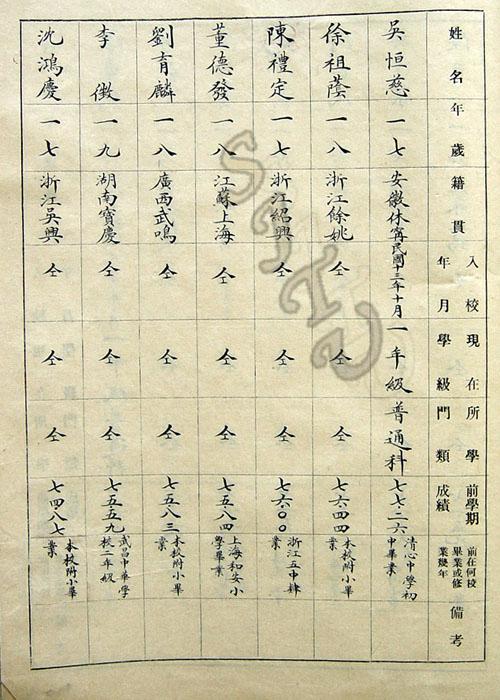 姓名 年歲 籍貫 入校年月 現在學級 所學門類 前學期成績 前在何校畢業或修業幾年 備考
吳恒慈 一七 安徽休寧 民國十三年十月 一年級 普通科 七七·二六 清心中學初中畢業
徐祖蔭 一八 浙江餘姚 仝 仝 仝 七六·四四 本校附小畢業
陳禮定 一七 浙江紹興 仝 仝 仝 七六·〇〇 浙江五中肄業
董德發 一八 江蘇上海 仝 仝 仝 七五·八四 上海和安小學畢業
劉育麟 一八 廣西武鳴 仝 仝 仝 七五·八三 本校附小畢業
李徵 一九 湖南寶慶 仝 仝 仝 七五·五九 武昌中華學校二年級
沈鴻慶 一七 浙江吳興 仝 仝 仝 七四·八七 本校附小畢業
SJTU